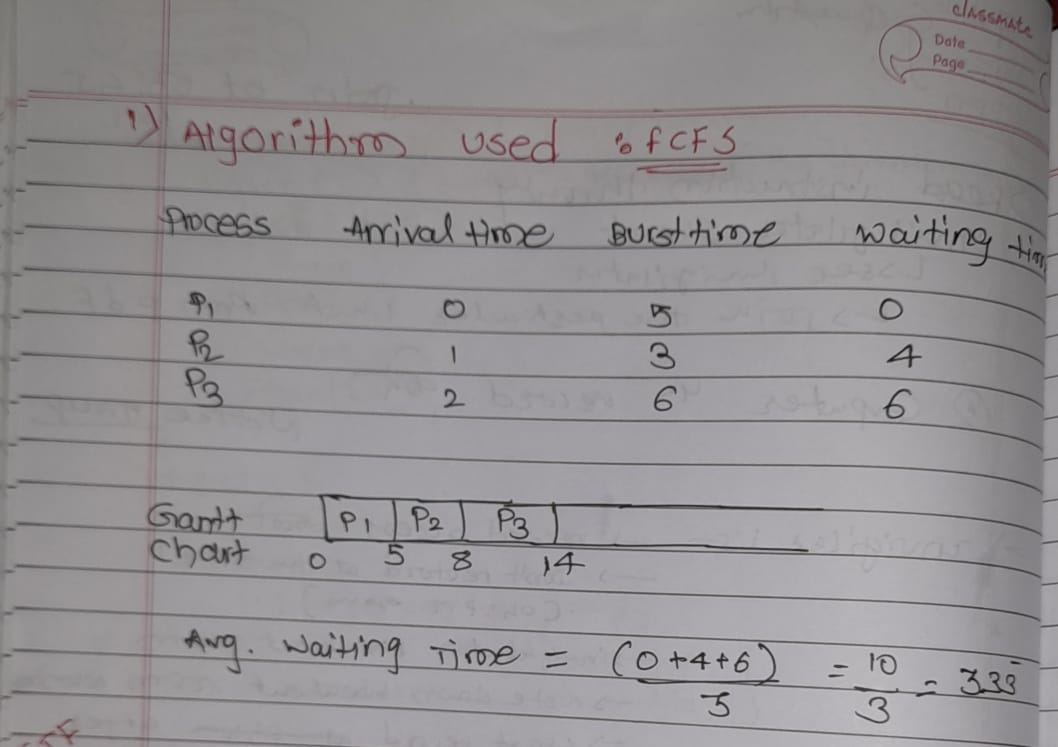 classmate
Date
Page
1) Algorithm used : FCFS
Process Arrival time Burst time Waiting tim
P1 0 5 0
P2 1 3 4
P3 2 6 6
Gantt Chart
P1 P2 P3
0 5 8 14
Avg. Waiting Time = (0+4+6) / 3 = 10 / 3 = 3.33